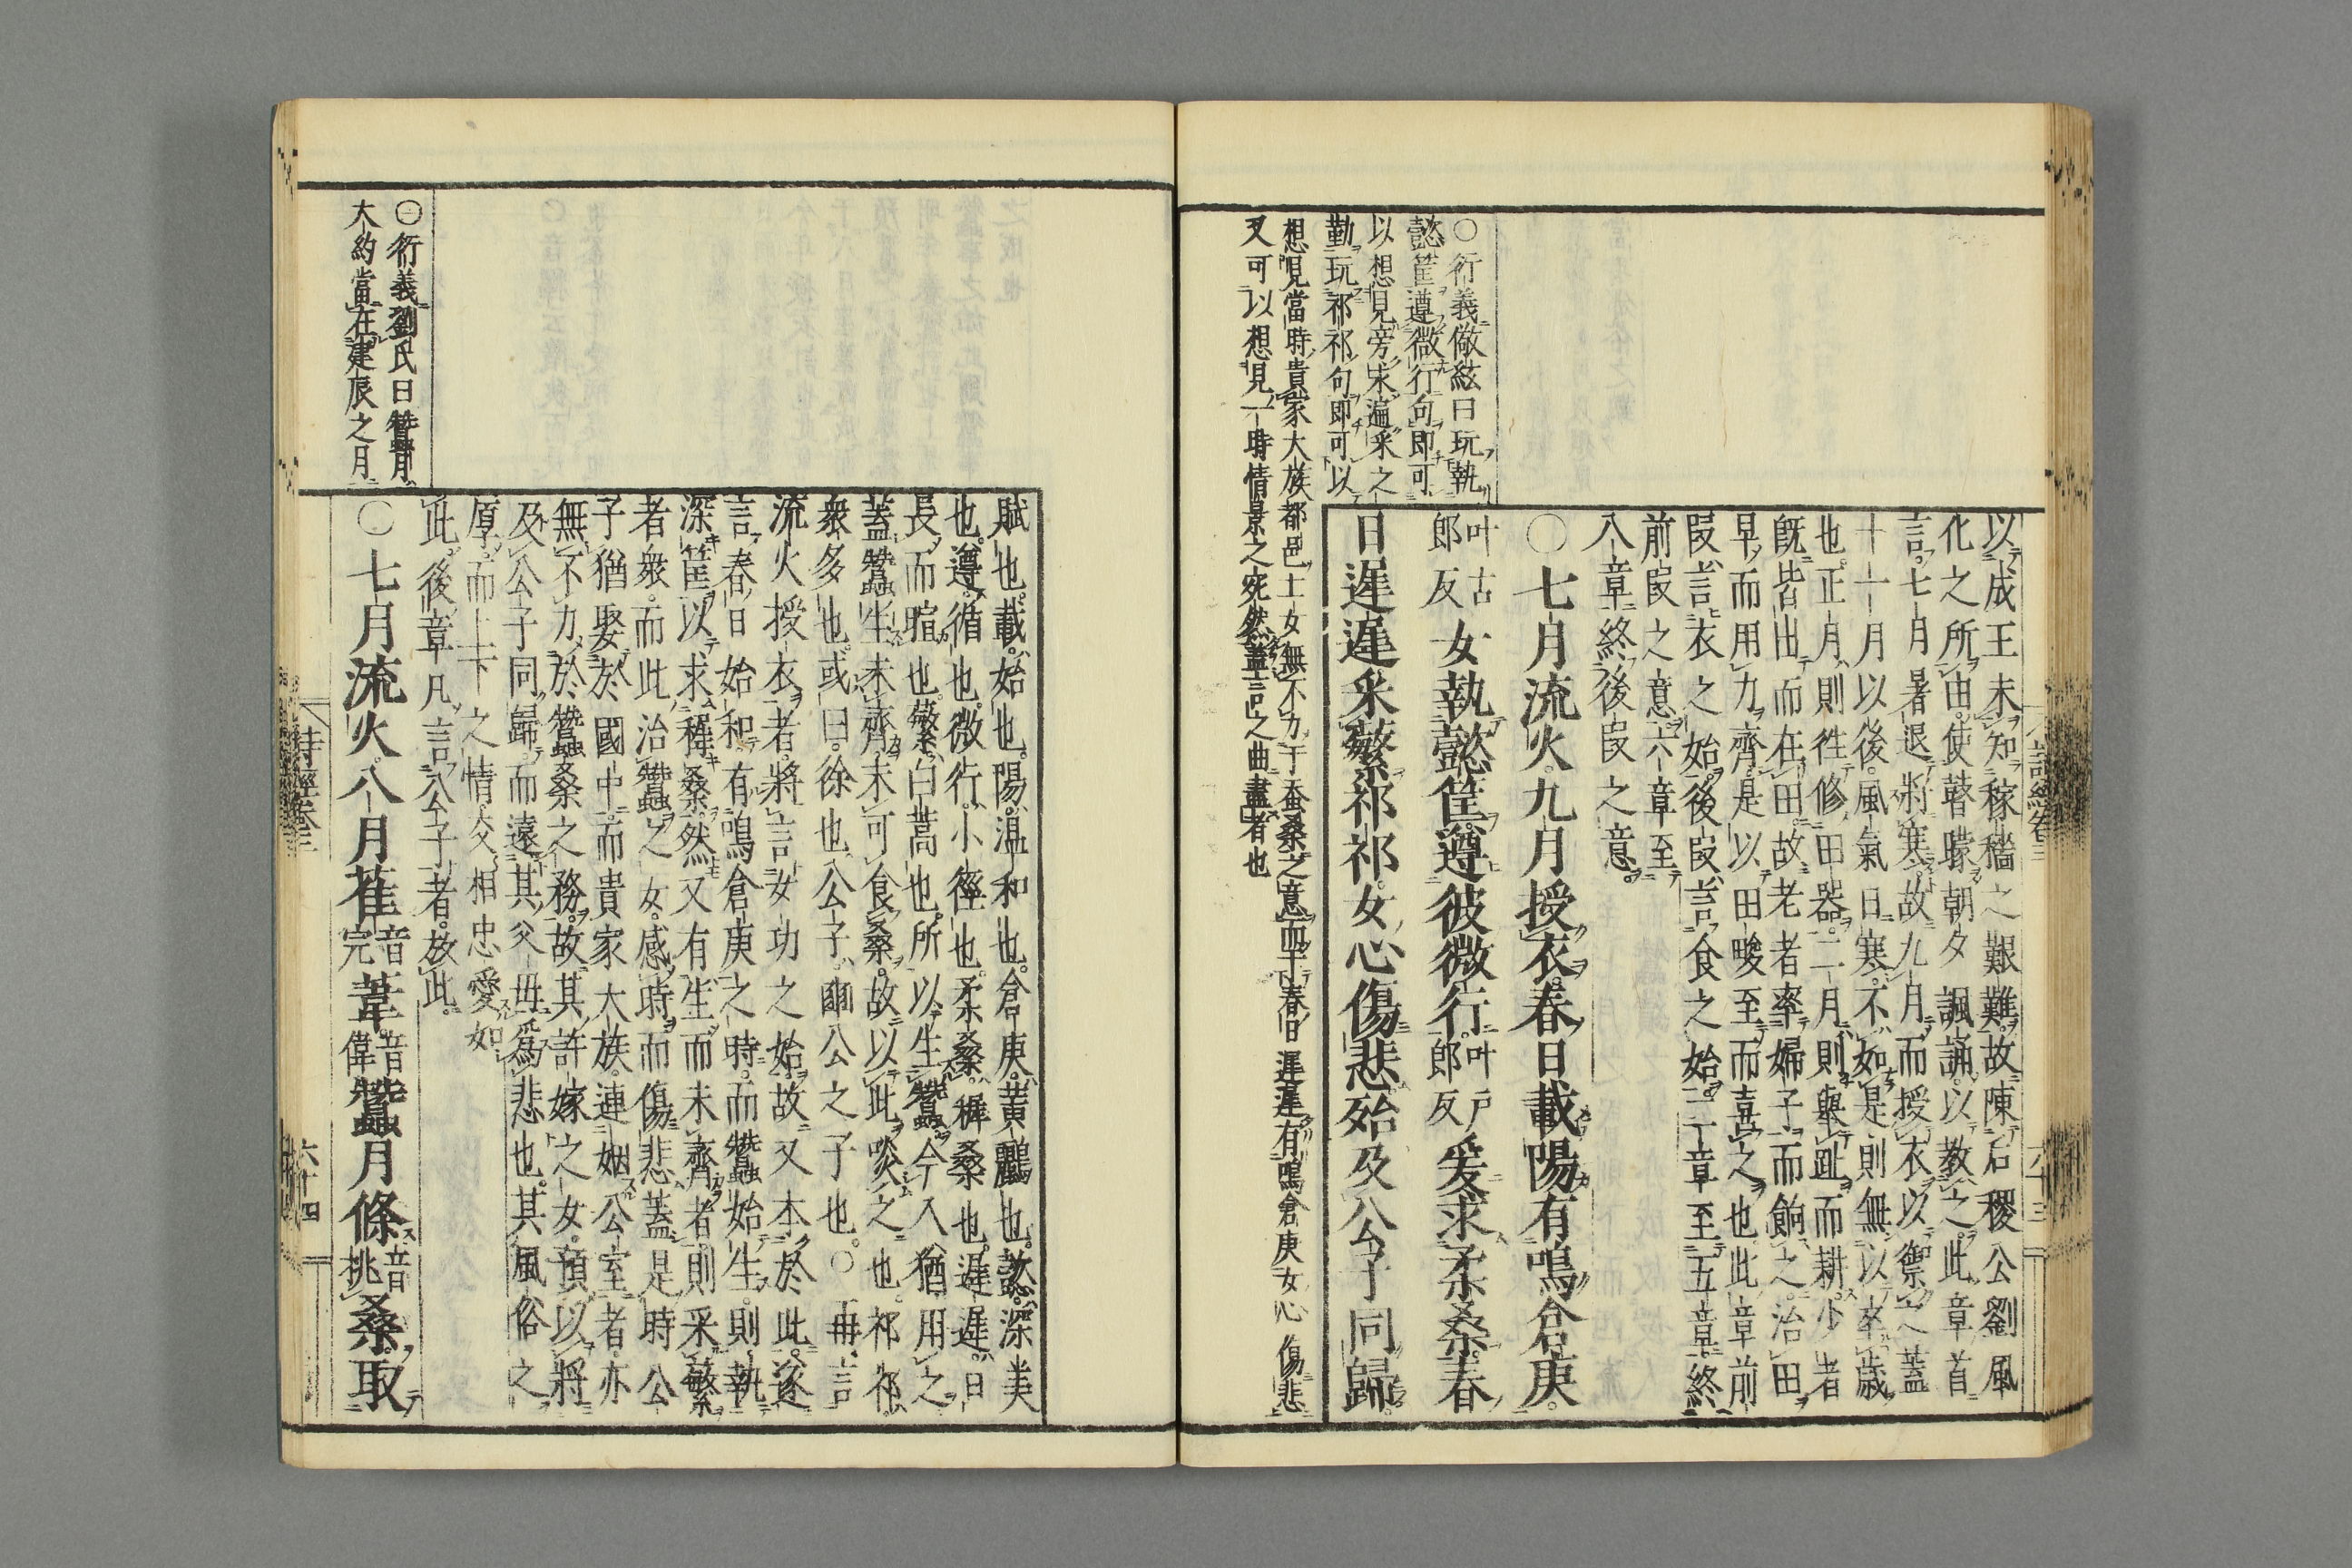 以成王未知稼穡之艱難故陳后稷公劉風
化之所由使瞽矇朝夕諷誦以教之此章首
言七月暑退將寒故九月而授衣以禦之蓋
十一月以後風氣日寒不如是則無以卒歲
也正月則往修田器二月則舉趾而耕少者
既皆出而在田故老者率婦子而餉之治田
早而用力齊是以田畯至而喜之也此章前
段言衣之始後段言食之始二章至五章終
前段之意六章至
八章終後段之意
○七月流火九月授衣春日載陽有鳴倉庚
叶古
郎反
女執懿筐遵彼微行
叶戸
郎反
爰求柔桑春
日遲遲采蘩祁祁女心傷悲殆及公子同歸
○衍義儆絃曰玩執
懿筐遵微行句即可
以想見旁求遍采之
勤玩祁祁句即可以
想見當時貴家大族都邑士女無不力于蚕桑之意而于春日遲遲有鳴倉庚女心傷悲
又可以想見一時情景之宛然蓋言之曲盡者也
詩經卷三
六十三
賦也載始也陽溫和也倉庚黃鸝也懿深美
也遵循也微行小徑也柔桑穉桑也遲遲日
長而暄也蘩白蒿也所以生蠶今人猶用之
蓋蠶生未齊未可食桑故以此啖之也祁祁
衆多也或曰徐也公子豳公之子也○再言
流火授衣者將言女功之始故又本於此遂
言春日始和有鳴倉庚之時而蠶始生則執
深筐以求穉桑然又有生而未齊者則采蘩
者衆而此治蠶之女感時而傷悲蓋是時公
子猶娶於國中而貴家大族連姻公室者亦
無不力於蠶桑之務故其許嫁之女預以將
及公子同歸而遠其父母為悲也其風俗之
厚而上下之情交相忠愛如
此後章凡言公子者放此
○衍義劉氏曰蠶月
大約當在建辰之月
○七月流火八月萑
音
完
葦
音
偉
蠶月條
音
挑
桑取
詩經卷三
六十四